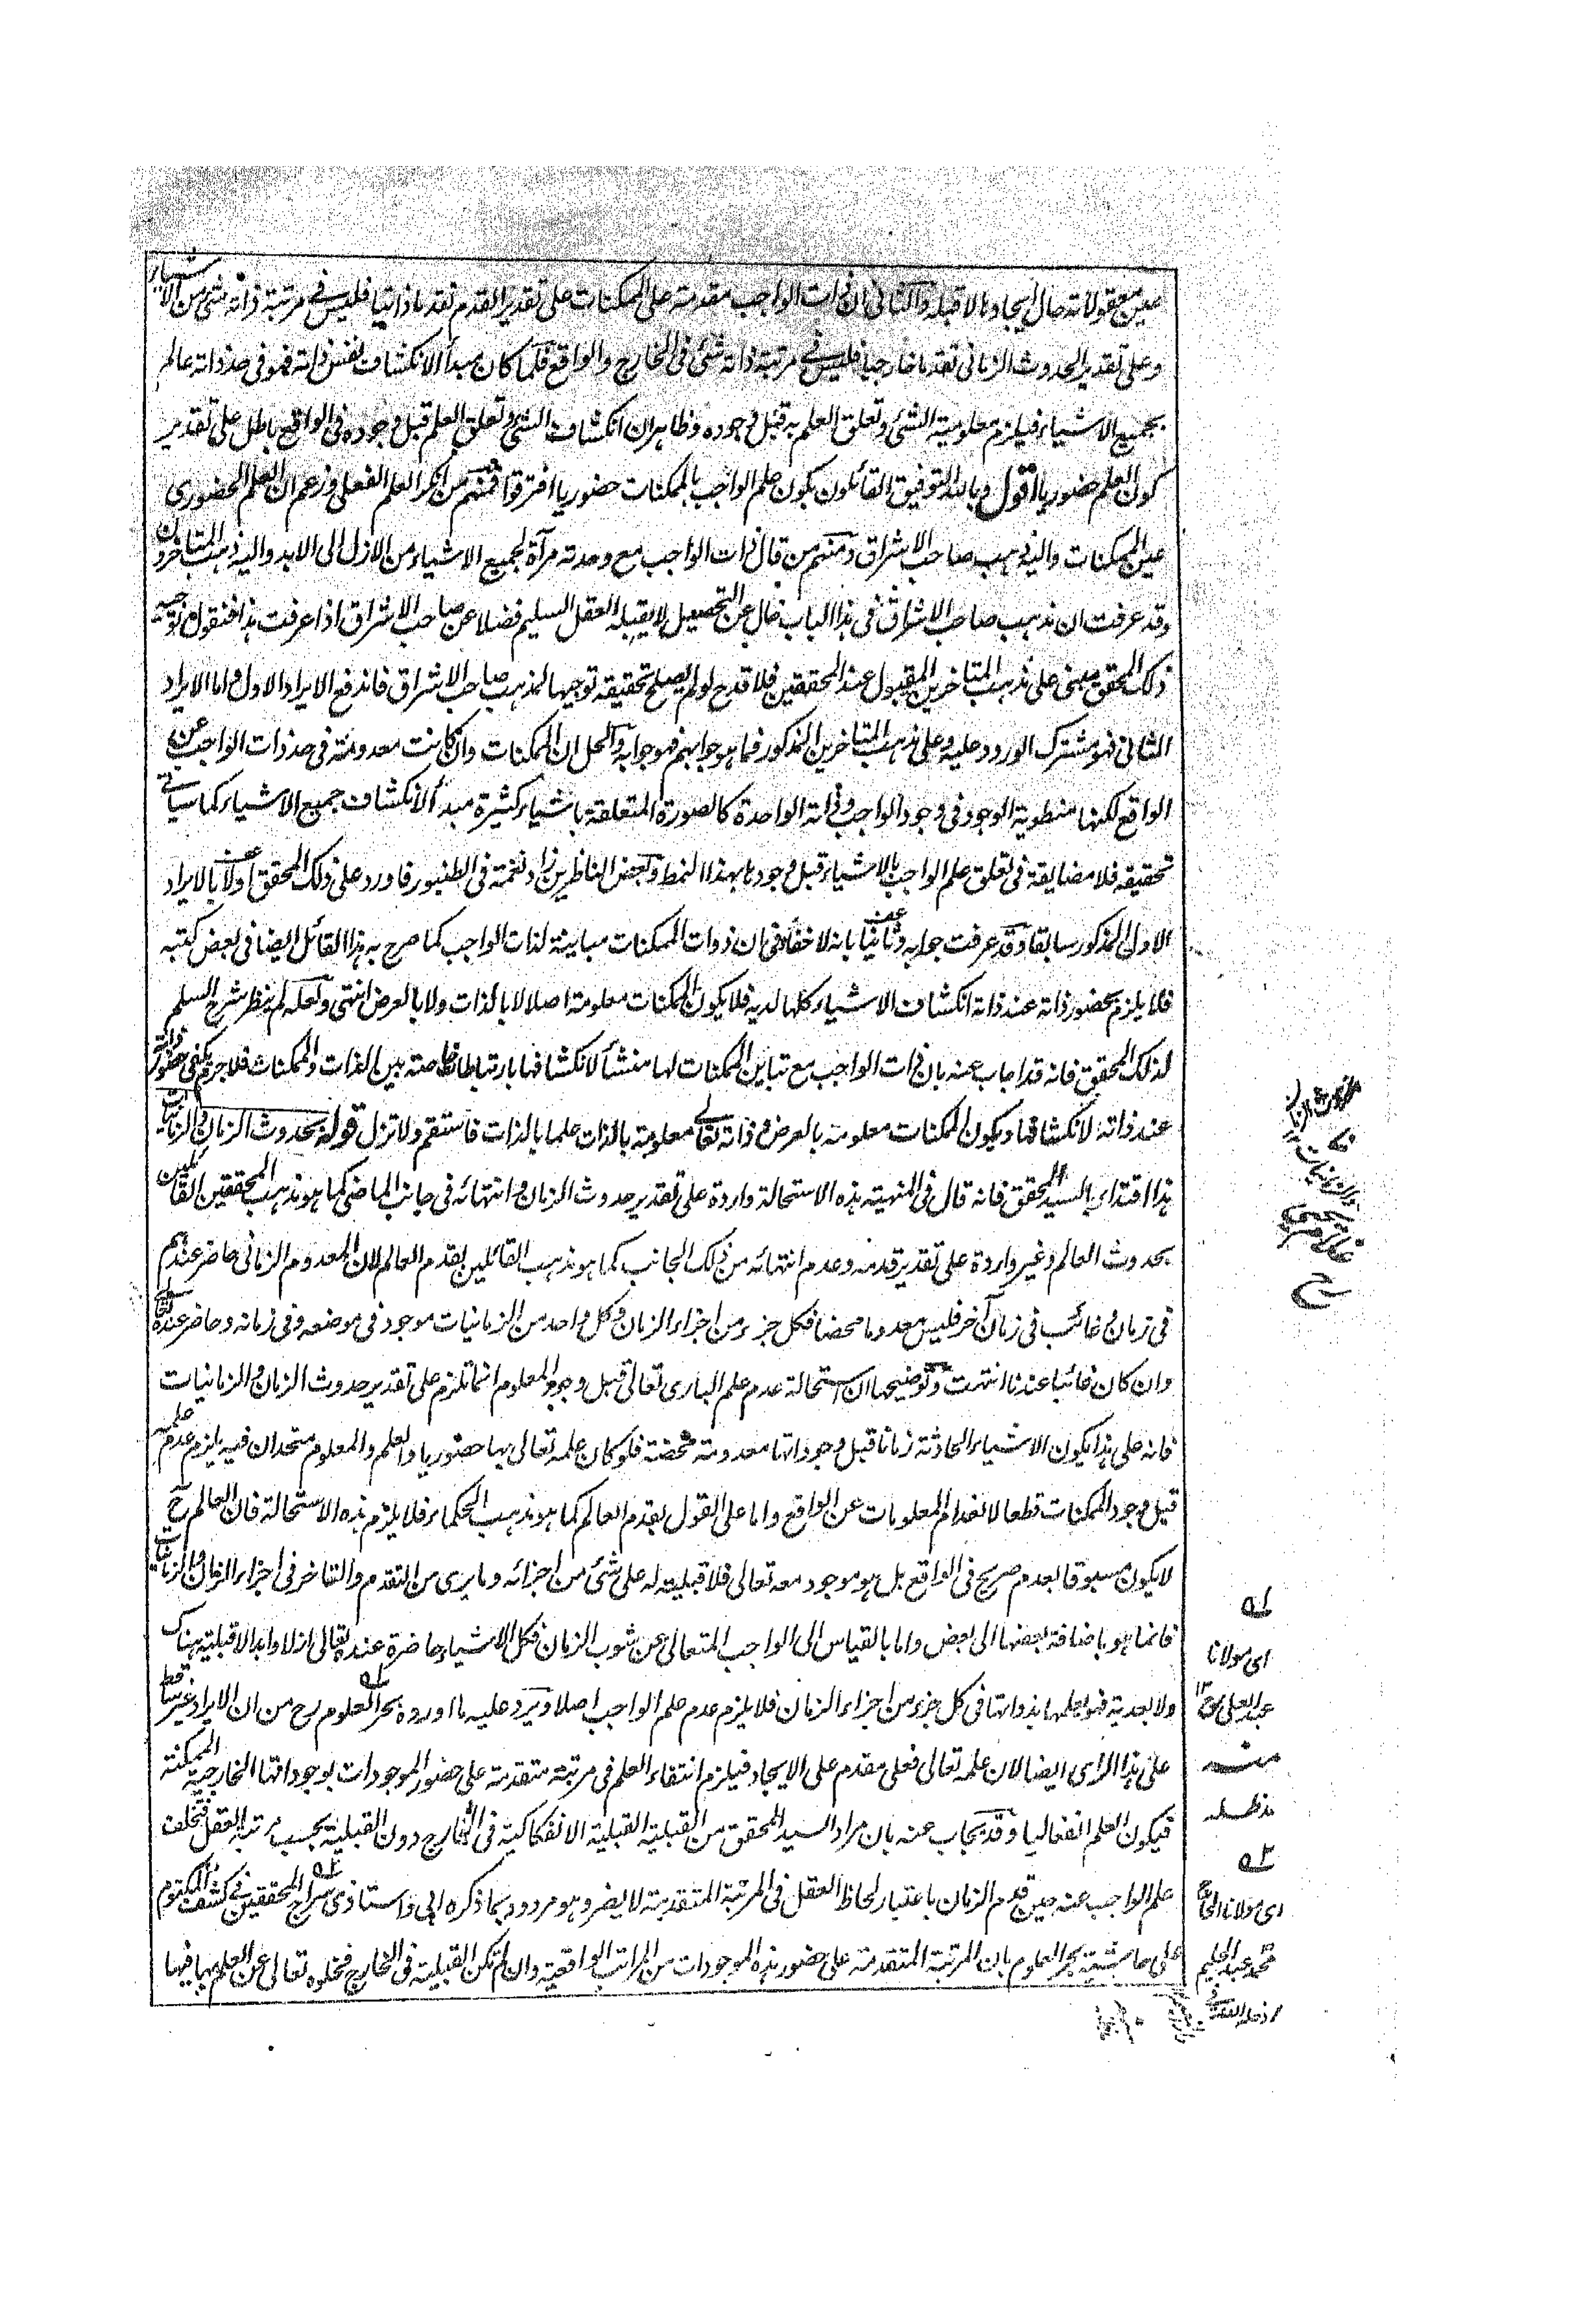 عين معقولاته حال ايجادها لا قبله والثاني ان ذات الواجب مقدمة على الممكنات على تقدير القدم تقدما ذاتيا فليس في مرتبة ذاته شئ من الاشياء
وعلى تقدير الحدوث الزماني تقدما خارجيا فليس في مرتبة ذاته شئ في الخارج والواقع فلما كان مبدأ الانكشاف نفس ذاته فهو في حد ذاته عالم
بجميع الاشياء فيلزم معلومية الشئ وتعلق العلم به قبل وجوده وظاهر ان انكشاف الشئ وتعلق العلم قبل وجوده في الواقع باطل على تقدير
كون العلم حضوريا اقول وبالله التوفيق القائلون بكون علم الواجب بالممكنات حضوريا افترقوا فمنهم من انكر العلم الفعلي وزعم ان العلم الحضوري
عين الممكنات واليه ذهب صاحب الاشراق ومنهم من قال ذات الواجب مع وحدته مرآة لجميع الاشياء من الازل الى الابد واليه ذهب المتاخرون
وقد عرفت ان مذهب صاحب الاشراق في هذا الباب خال عن التحصيل لا يقبله العقل السليم فضلا عن صاحب الاشراق اذا عرفت هذا فنقول توجيه
ذلك المحقق مبني على مذهب المتاخرين المقبول عند المحققين فلا قدح لو لم يصلح تحقيقه توجيها لمذهب صاحب الاشراق فاندفع الايراد الاول واما الايراد
الثاني فهو مشترك الورود عليه وعلى مذهب المتاخرين المذكور فما هو جوابهم فهو جوابه والحل ان الممكنات وان كانت معدومة في حد ذات الواجب عن
الواقع لكنها منطوية الوجود في وجود الواجب وذاته الواحدة كالصورة المتعلقة باشياء كثيرة مبدأ لانكشاف جميع الاشياء كما سياتي
تحقيقه فلا مضايقة في تعلق علم الواجب بالاشياء قبل وجودها بهذا النمط وبعض الناظرين زاد نغمة في الطنبور فاورد على ذلك المحقق اولا بالايراد
الاول المذكور سابقا وقد عرفت جوابه وثانيا بانه لا خفاء في ان ذوات الممكنات مباينة لذات الواجب كما صرح به هذا القائل ايضا في بعض كتبه
فلا يلزم بحضور ذاته عند ذاته انكشاف الاشياء كلها لديه فلا يكون الممكنات معلومة اصلا لا بالذات ولا بالعرض انتهى ولعله لم ينظر شرح السلم
لذلك المحقق فانه قد اجاب عنه بان ذات الواجب مع تباين الممكنات لها منشأ لانكشافها بارتباط خاصة بين الذات والممكنات فلا جرم يكفي حضور ذاته
عند ذاته لانكشافها ويكون الممكنات معلومة بالعرض وذاته تعالى معلومة بالذات علما بالذات فاستقم ولا تزل قوله بحدوث الزمان والزمانيات
هذا اقتداء بالسيد المحقق فانه قال في المنهية هذه الاستحالة واردة على تقدير حدوث الزمان وانتهائه في جانب الماضي كما هو مذهب المحققين القائلين
بحدوث العالم وغير واردة على تقدير قدمه وعدم انتهائه من ذلك الجانب كما هو مذهب القائلين بقدم العالم لان المعدوم الزماني حاضر عندهم
في زمان وغائب في زمان آخر فليس معدوما محضا فكل جزء من اجزاء الزمان وكل واحد من الزمانيات موجود في موضعه وفي زمانه وحاضر عنده تعالى
وان كان غائبا عندنا انتهت وتوضيحها ان استحالة عدم علم الباري تعالى قبل وجود المعلوم انما تلزم على تقدير حدوث الزمان والزمانيات
فانه على هذا يكون الاشياء الحادثة زمانا قبل وجوداتها معدومة محضة فلو كان علمه تعالى بها حضوريا والعلم والمعلوم متحدان فيه يلزم عدم علمه
قبل وجود الممكنات قطعا لانعدام المعلومات عن الواقع واما على القول بقدم العالم كما هو مذهب الحكماء فلا يلزم هذه الاستحالة فان العالم ح
لا يكون مسبوقا بعدم صريح في الواقع بل هو موجود معه تعالى فلا قبلية له على شئ من اجزائه وما يرى من التقدم والتاخر في اجزاء الزمان والزمانيات
فانما هو باضافة بعضها الى بعض واما بالقياس الى الواجب المتعالي عن شوب الزمان فكل الاشياء حاضرة عنده تعالى ازلا وابدا لا قبلية هناك
ولا بعدية فهو يعلمها بذواتها في كل جزء من اجزاء الزمان فلا يلزم عدم علم الواجب اصلا ويرد عليه ما اورده بحر العلوم رح من ان الايراد غير ساقط
على هذا الراي ايضا لان علمه تعالى فعلي مقدم على الايجاد فيلزم انتفاء العلم في مرتبة متقدمة على حضور الموجودات بوجوداتها الخارجية الممكنة
فيكون العلم انفعاليا وقد يجاب عنه بان مراد السيد المحقق من القبلية القبلية الانفكاكية في الخارج دون القبلية بحسب مرتبة العقل فتخلف
علم الواجب عنه حين قدم الزمان باعتبار لحاظ العقل في المرتبة المتقدمة لا يضر وهو مردود بما ذكره ابي واستاذي سراج المحققين في كشف المكتوم
على حاشية بحر العلوم بان المرتبة المتقدمة على حضور هذه الموجودات من المراتب الواقعية وان لم تكن القبلية في الخارج فخلوه تعالى عن العلم بها فيها
له
اى مولانا
عبد العلى رح ١٢
منه
مد ظله
٢ه
اى مولانا الحاج
محمد عبد الحليم